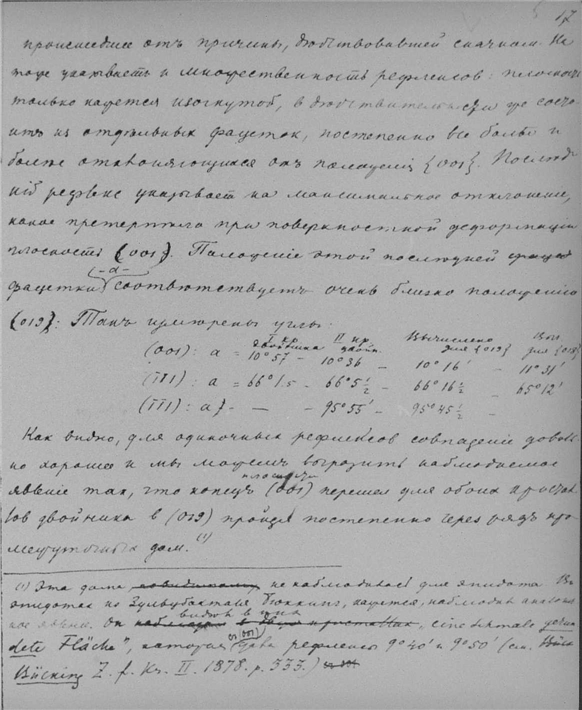 17
происшедшее отъ причины, действовавшей сначала. На
тоже указываетъ и множественность рефлексовъ: плоскость
только кажется изогнутой, в действительности же состо-
итъ из отдельныхъ фацетокъ, постепенно все более и
более отклоняющихся отъ положенія {001}. Послед-
ній рефлексъ указываетъ на максимальное отклоненіе,
какое претерпела при поверхностной деформаціи
плоскость (001). Положеніе этой последней
–a–
фацетки соответствуетъ очень близко положенію
{019}: Такъ измерены углы:
двойника II кр. двойн. Вычислено для {019} для {018}
(001): a = 10°57 – 10°36 – 10°16' – 11°31'
(1̅11): a = 66°15 – 66°5½ – 66°16½ – 65°12'
(1̅1̅1): a} – – 95°55' – 95°45½ –
Какъ видно, для одиночныхъ рефлексовъ совпаденіе доволь-
но хорошее и мы можемъ выразить наблюдаемое
плоскость
явленіе такъ, что конецъ (001) перешелъ для обоихъ кристал-
ловъ двойника в (019) пройдя постепенно через рядъ про-
межуточныхъ домъ. (1)
(1) Эта дома не наблюдалась для эпидота. Въ
эпидотахъ из Зульцбахталя Бюкингъ, кажется, наблюдалъ аналогич-
ное явленіе. Он
видел в eine dermals gerun-
dete Fläche", которая (001) два рефлекса 9°40' и 9°50' (см.
Bücking Z. f. Kr. II. 1878. p. 333.)